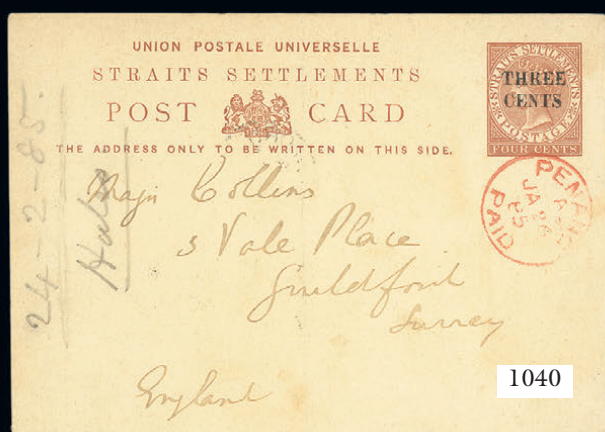 UNION POSTALE UNIVERSELLE
STRAITS SETTLEMENTS
POST CARD
THE ADDRESS ONLY TO BE WRITTEN ON THIS SIDE.
STRAITS SETTLEMENTS
POSTAGE
THREE
CENTS
FOUR CENTS
PENANG
JA 26
85
PAID
Majr Collins
3 Vale Place
Guildford
Surrey
England
24-2-85.
1040